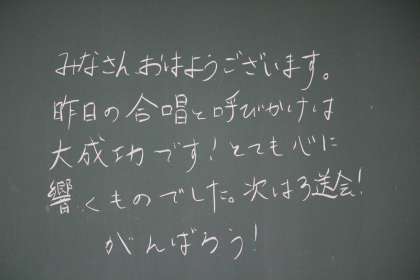 みなさん おはようございます。
昨日の合唱と呼びかけは
大成功です！とても心に
響くものでした。次は3送会！
がんばろう！